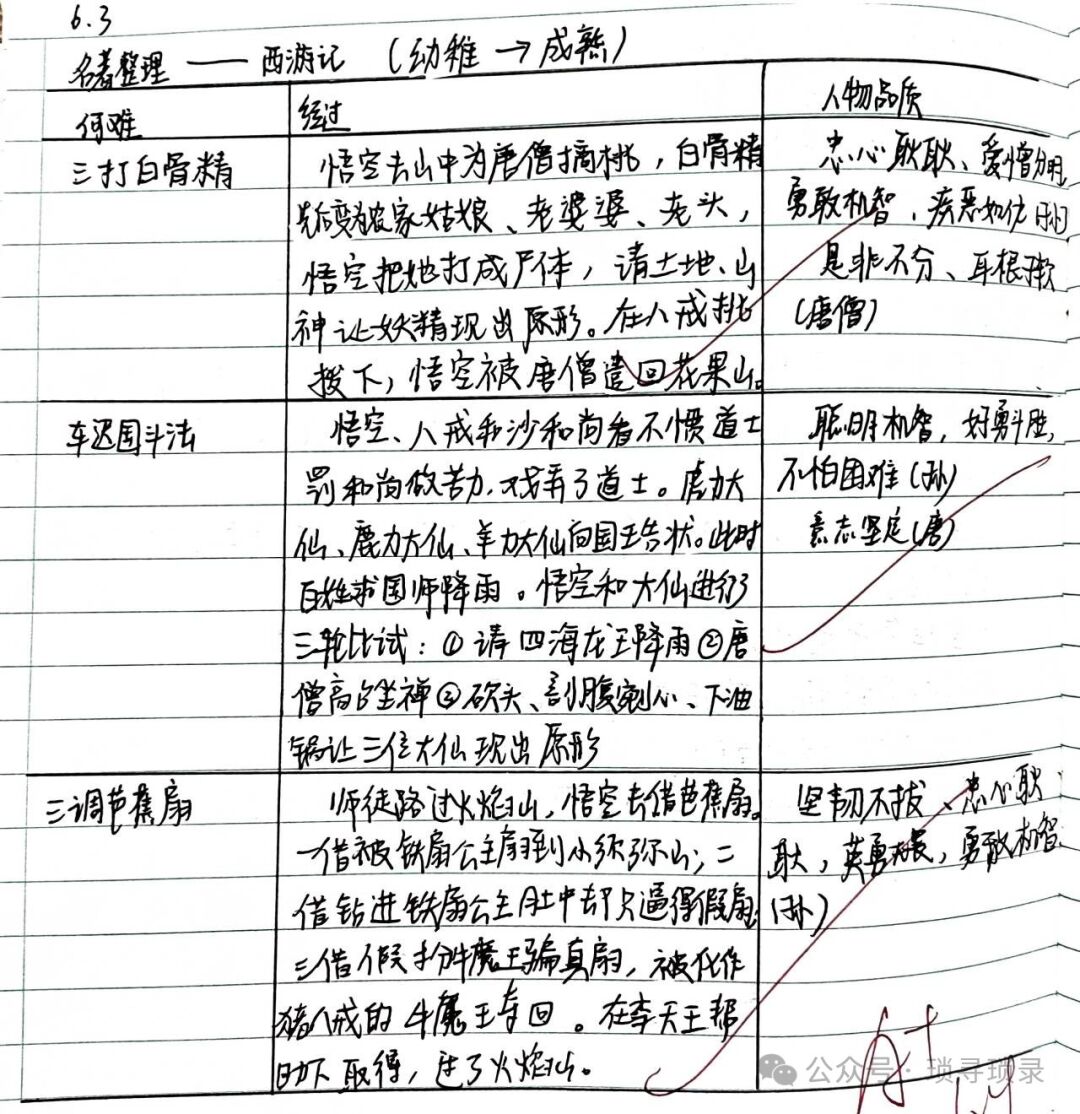 6.3
名著整理 —— 西游记 (幼稚 → 成熟)
何难 经过 人物品质
三打白骨精
悟空去山中为唐僧摘桃，白骨精
先后变为农家姑娘、老婆婆、老头，
悟空把她打成尸体，请土地、山
神让妖精现出原形。在八戒挑
拨下，悟空被唐僧遣回花果山。
忠心耿耿、爱憎分明
勇敢机智、疾恶如仇 (孙)
是非不分、耳根子软
(唐僧)
车迟国斗法
悟空、八戒和沙和尚看不惯道士
罚和尚做苦力，戏弄了道士。虎力大
仙、鹿力大仙、羊力大仙向国王告状。此时
百姓求国师降雨。悟空和大仙进行了
三轮比试：① 请四海龙王降雨②唐
僧高台坐禅③砍头、剖腹剜心、下油
锅让三位大仙现出原形
聪明机智，好勇斗胜，
不怕困难 (孙)
意志坚定(唐)
三调芭蕉扇
师徒路过火焰山，悟空去借芭蕉扇。
一借被铁扇公主扇到小须弥山；二
借钻进铁扇公主肚中却只逼得假扇；
三借假扮牛魔王骗真扇，被化作
猪八戒的牛魔王夺回。在李天王帮
助下取得，过了火焰山。
坚韧不拔、忠心耿
耿，英勇无畏，勇敢机智
(孙)
A+
公众号·琐寻琐录